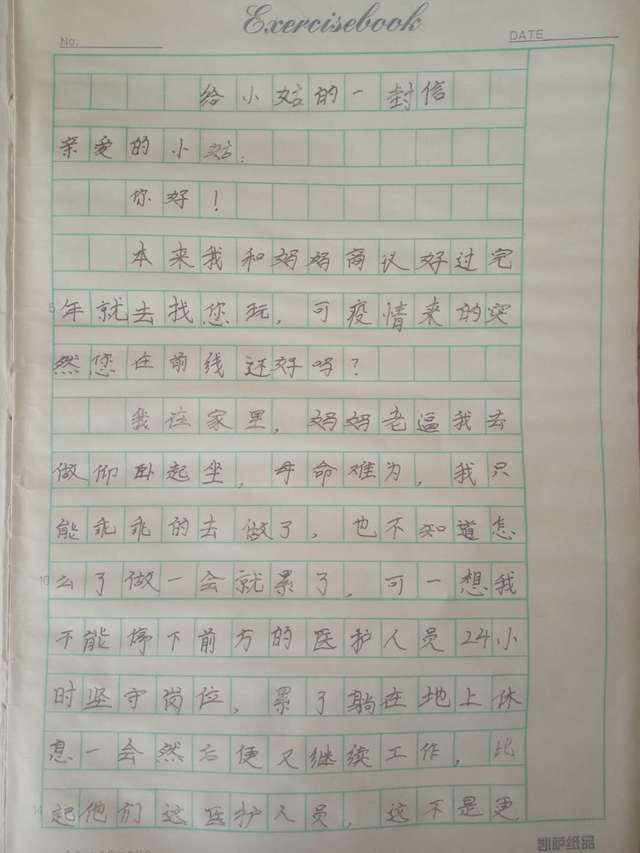 Exercisebook
No.
DATE
给小姑的一封信
亲爱的小姑：
你好！
本来我和妈妈商议好过完
5年就去找您玩，可疫情来的突
然您在前线还好吗？
我在家里，妈妈老逼我去
做仰卧起坐，母命难为，我只
能乖乖的去做了，也不知道怎
10么了做一会就累了，可一想我
不能停下前方的医护人员24小
时坚守岗位，累了躺在地上休
息一会然后便又继续工作，比
起他们这医护人员，这不是更
凯萨纸品